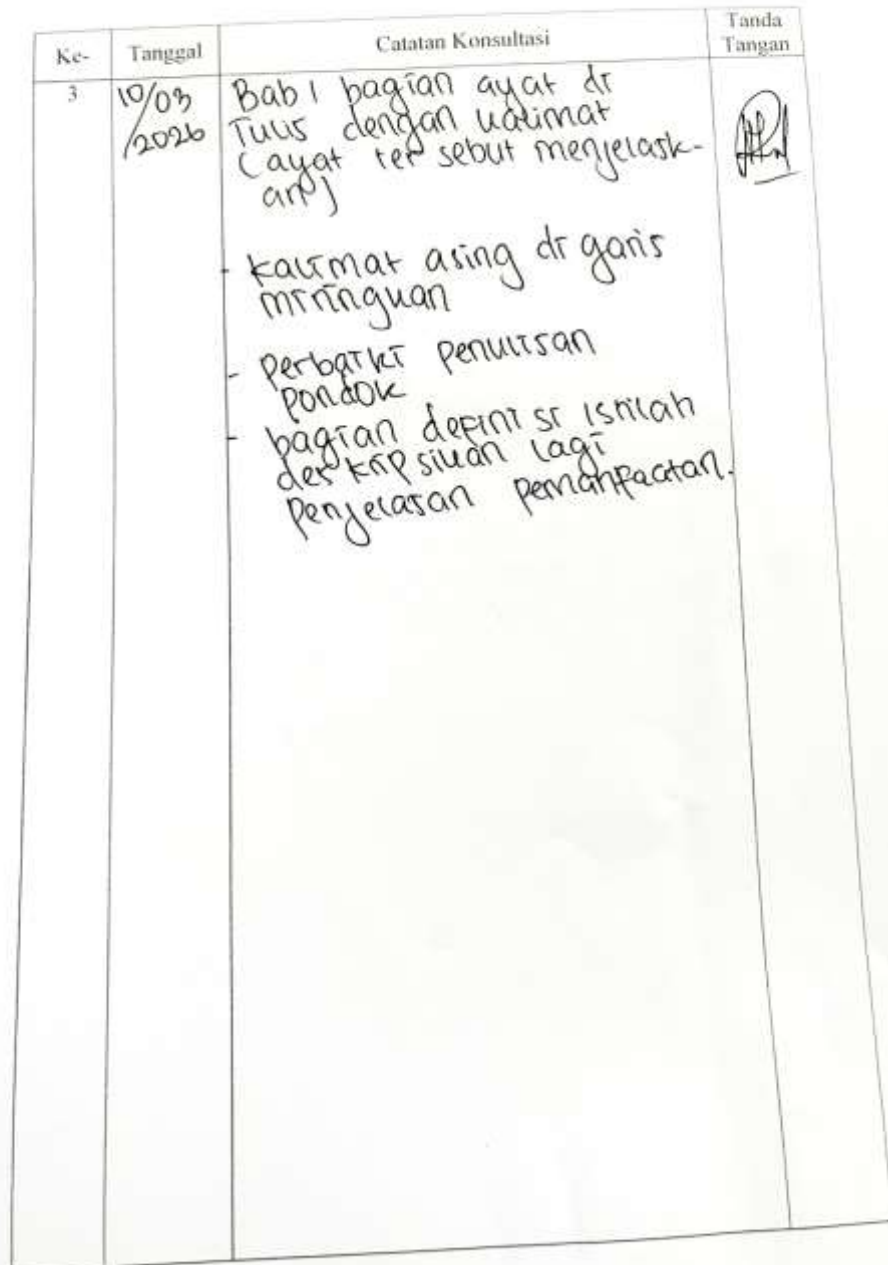 Ke- Tanggal Catatan Konsultasi Tanda Tangan
3 10/03/2026 Bab 1 bagian ayat di
Tulis dengan kalimat
(ayat ter sebut menjelask-
an)
- kalimat asing di garis
miringkan
- perbaiki penulisan
pondok
- bagian depini si istilah
des krip sikan lagi
penjelasan pemanpaatan.